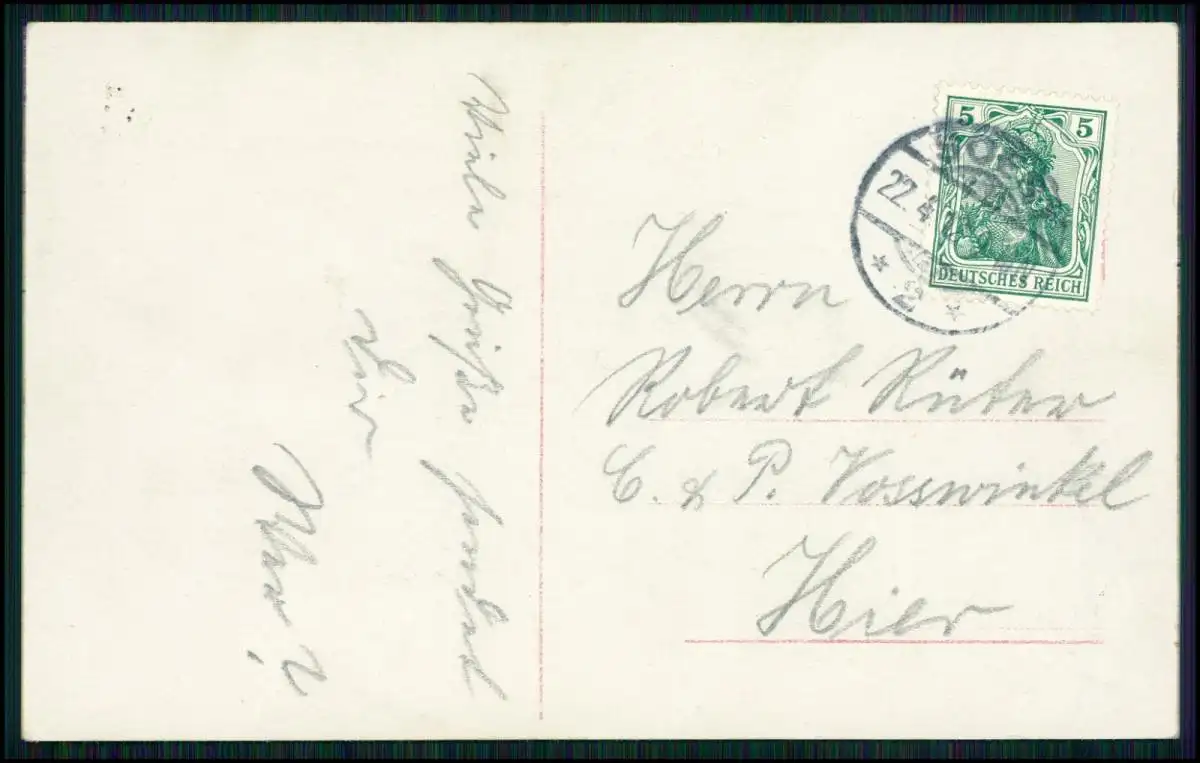 Viele Grüße sendet
Dir
Wer?
5 5
DEUTSCHES REICH
22. 4.
* 2 *
Herrn
Robert Rüter
C. & P. Vosswinkel
Hier